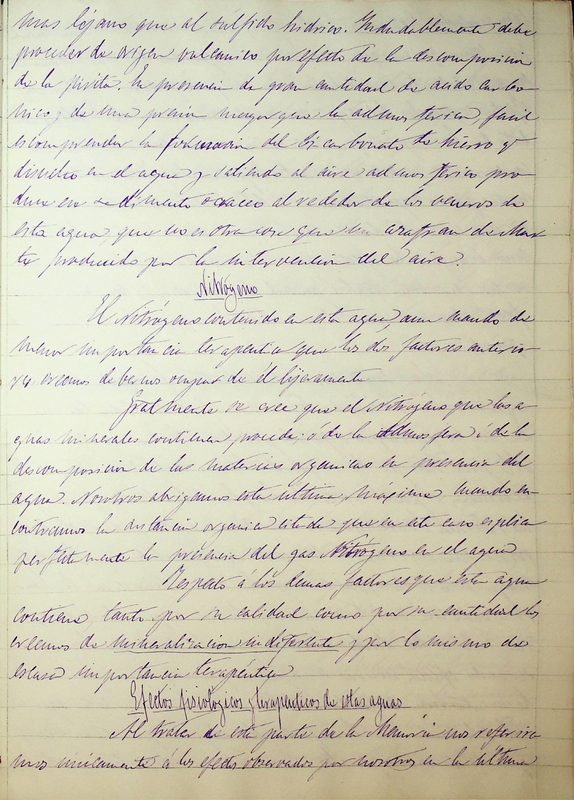 mas lejano que al sulfido hidrico. Indudablemente debe
proceder de origen volcanico por efecto de la descomposicion
de la pirita. En presencia de gran cantidad de acido carbo
nico y de una presion mayor que la admosferica facil
es comprender la formacion del bicarbonato de hierro q.e
disuelto en el agua y saliendo al aire admosferico pro
duce ese sedimento ocráceo al rededor de los veneros de
esta agua, que no es otra cosa que un azafran de Mar
te producido por la intervencion del aire.
Nitrógeno
El Nitrógeno contenido en esta agua, aun cuando de
menor importancia terapeutica que los dos factores anterio
res creemos debernos ocupar de el lijeramente
Gralmente se cree que el Nitrógeno que las a
guas minerales contienen procede; ó de la Admosfera ó de la
descomposicion de las materias organicas en presencia del
agua. Nosotros abrigamos esta última, máxime cuando en
contramos la sustancia organica citada que en este caso esplica
perfectamente la presencia del gas Nitrógeno en el agua
Respecto á los demas factores que esta agua
contiene tanto por su calidad como por su cantidad los
creemos de mineralizacion indiferente y por lo mismo de
escasa importancia terapéutica
Efectos fisiologicos y terapeuticos de estas aguas
Al tratar de esta parte de la Memoria nos referire
mos únicamente á los efectos observados por nosotros en la última